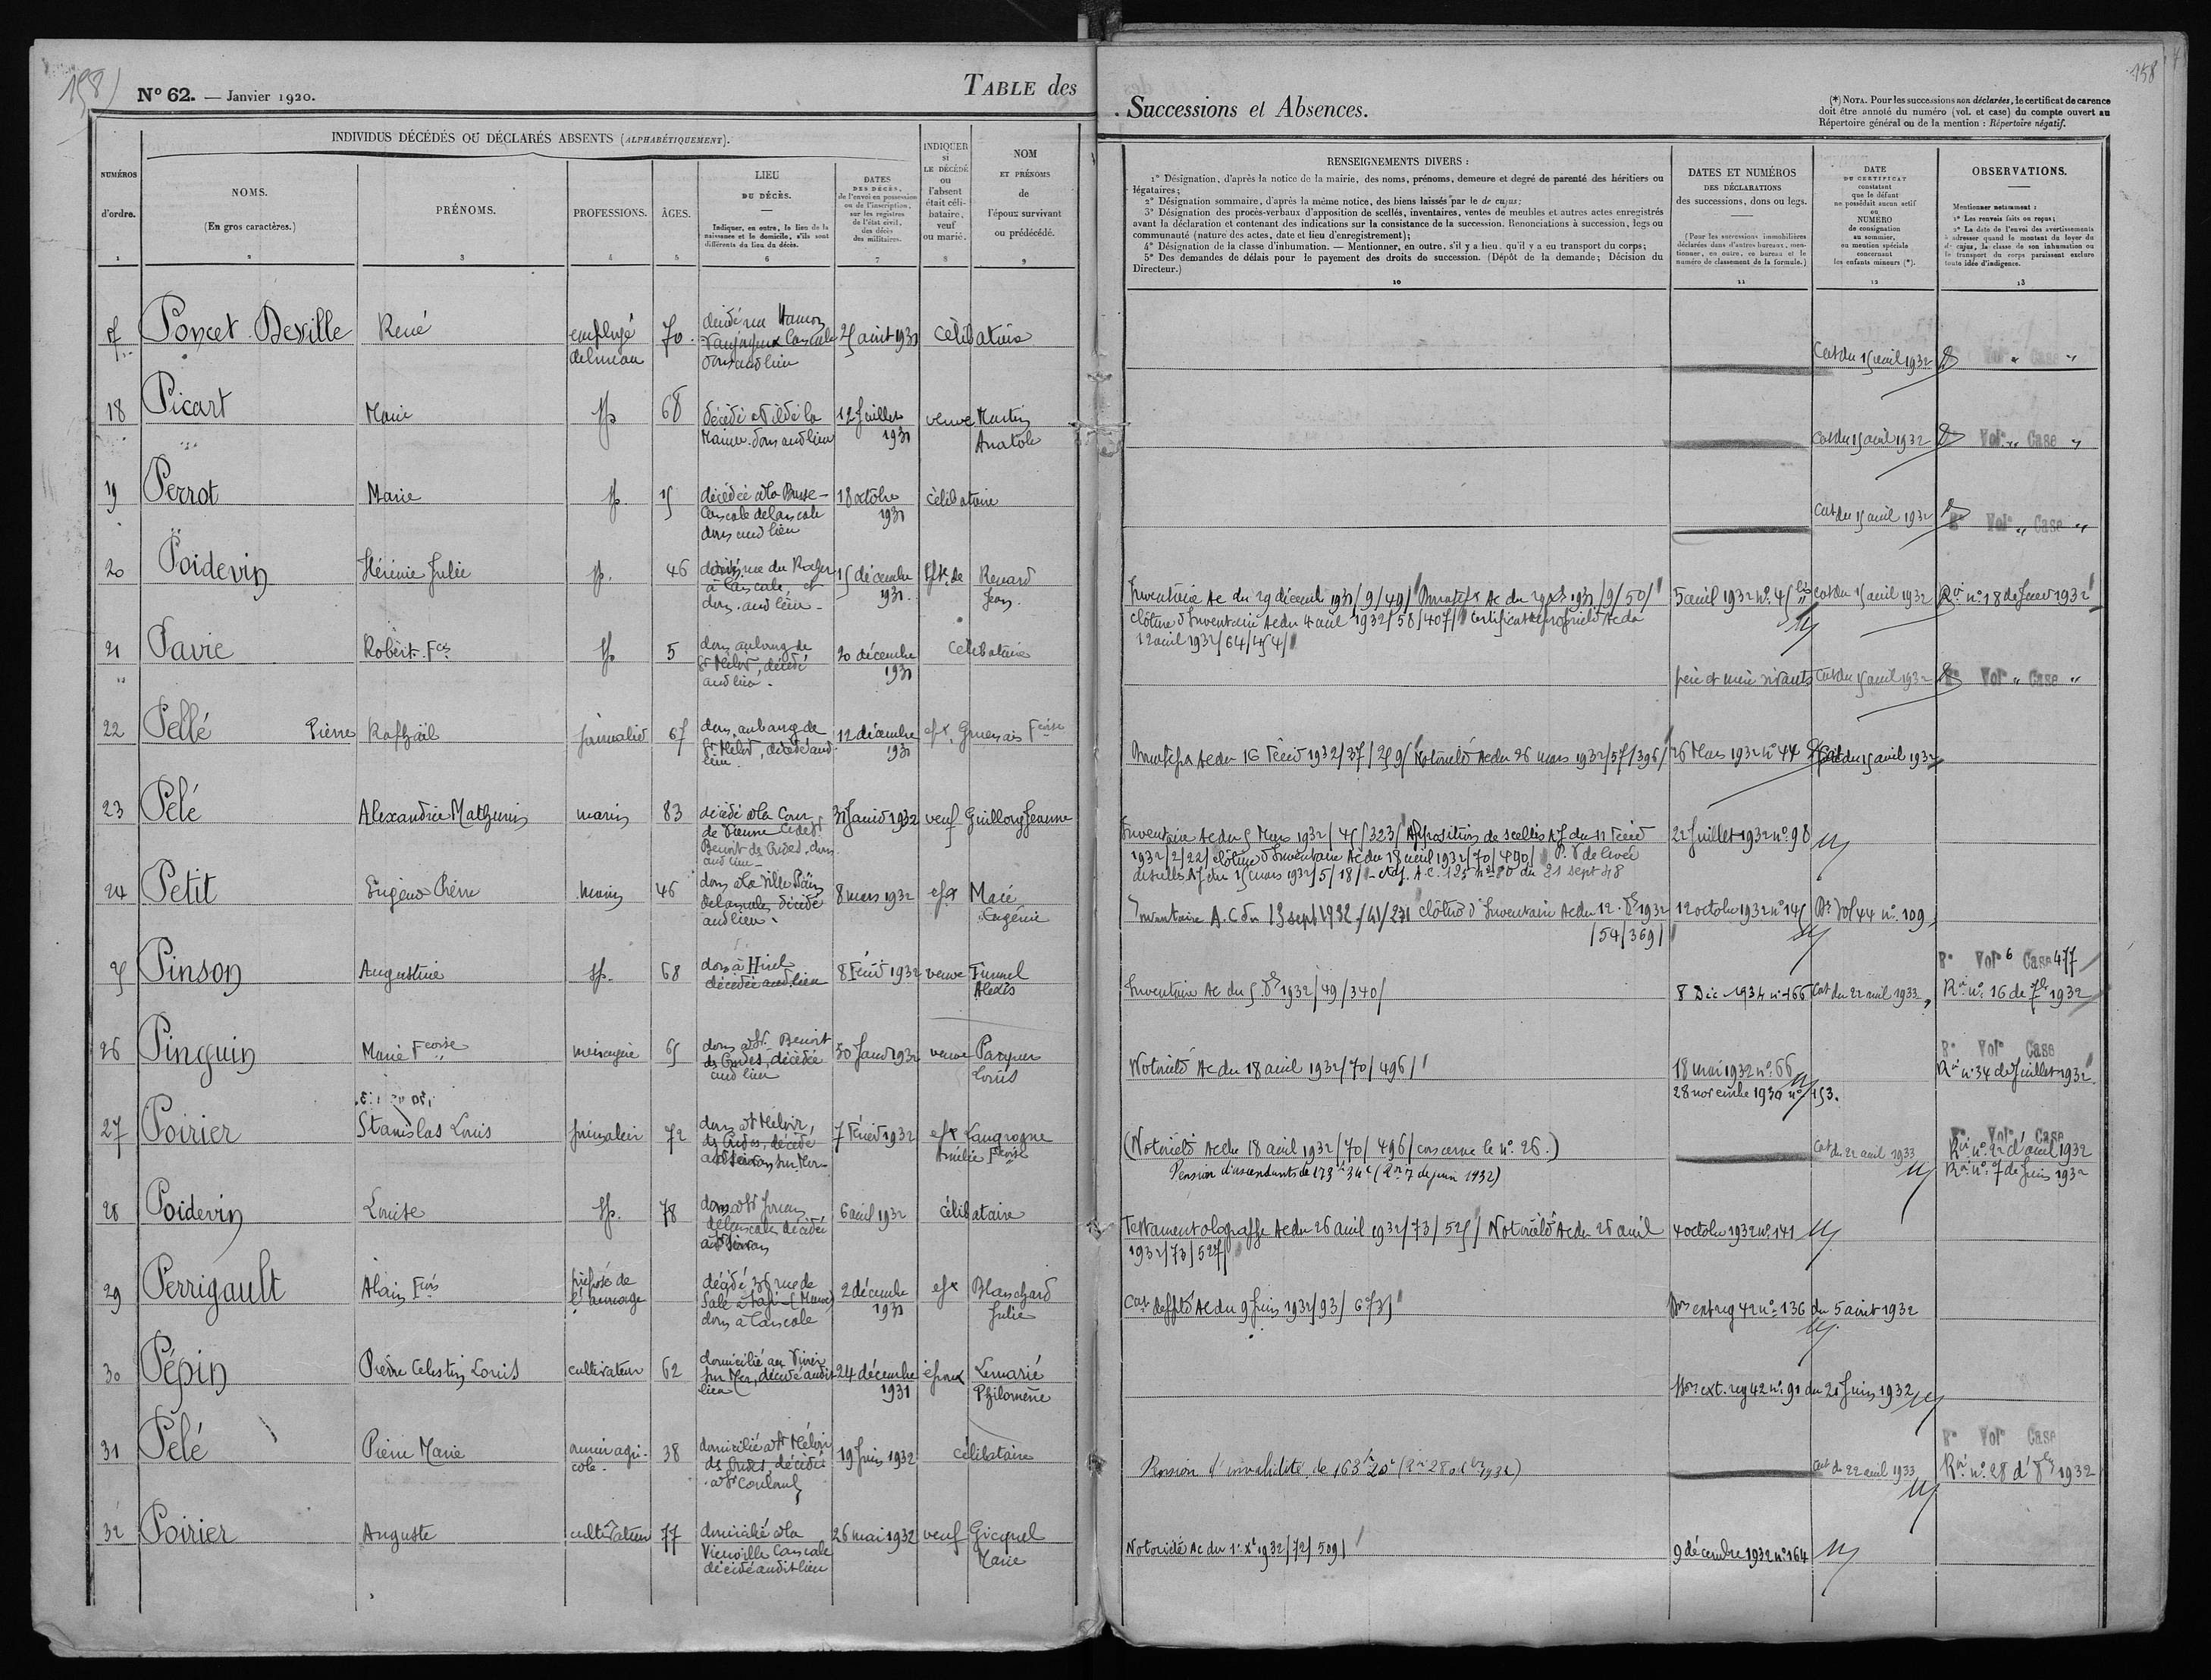 158)
N° 62. — Janvier 1920.
TABLE des
Successions et Absences.
158
(*) NOTA. Pour les successions non déclarées, le certificat de carence
doit être annoté du numéro (vol. et case) du compte ouvert au
Répertoire général ou de la mention : Répertoire négatif.
INDIVIDUS DÉCÉDÉS OU DÉCLARÉS ABSENTS (ALPHABÉTIQUEMENT).
NUMÉROS
d'ordre.
1
NOMS.
(En gros caractères.)
2
PRÉNOMS.
3
PROFESSIONS.
4
ÂGES.
5
LIEU
DU DÉCÈS.
Indiquer, en outre, le lieu de la
naissance et le domicile, s'ils sont
différents du lieu du décès.
6
DATES
DES DÉCÈS,
de l'envoi en possession
ou de l'inscription,
sur les registres
de l'état civil,
des décès
des militaires.
7
INDIQUER
si
LE DÉCÉDÉ
ou
l'absent
était céli-
bataire,
veuf
ou marié.
8
NOM
ET PRÉNOMS
de
l'époux survivant
ou prédécédé.
9
RENSEIGNEMENTS DIVERS :
1° Désignation, d'après la notice de la mairie, des noms, prénoms, demeure et degré de parenté des héritiers ou
légataires;
2° Désignation sommaire, d'après la même notice, des biens laissés par le de cujus;
3° Désignation des procès-verbaux d'apposition de scellés, inventaires, ventes de meubles et autres actes enregistrés
avant la déclaration et contenant des indications sur la consistance de la succession. Renonciations à succession, legs ou
communauté (nature des actes, date et lieu d'enregistrement);
4° Désignation de la classe d'inhumation. — Mentionner, en outre, s'il y a lieu, qu'il y a eu transport du corps;
5° Des demandes de délais pour le payement des droits de succession. (Dépôt de la demande; Décision du
Directeur.)
10
DATES ET NUMÉROS
DES DÉCLARATIONS
des successions, dons ou legs.
(Pour les successions immobilières
déclarées dans d'autres bureaux, men-
tionner, en outre, ce bureau et le
numéro de classement de la formule.)
11
DATE
DU CERTIFICAT
constatant
que le défunt
ne possédait aucun actif
ou
NUMÉRO
de consignation
au sommier,
ou mention spéciale
concernant
les enfants mineurs (*).
12
OBSERVATIONS.
Mentionner notamment :
1° Les renvois faits ou reçus;
2° La date de l'envoi des avertissements
à adresser quand le montant du loyer du
de cujus, la classe de son inhumation ou
le transport du corps paraissent exclure
toute idée d'indigence.
13
17 Poncet Deville René employé 70 décédé rue 25 août 1931 célibataire
de bureau
dom audlieu
Cert du 15 avril 1932 Vol " Case "
18 Picart Marie sp 68 décédée 12 Juillet veuve Martin
dom audlieu 1931 Anatole
Cert du 15 avril 1932 Vol " Case "
19 Perrot Marie sp 15 décédée à la 18 octobre célibataire
Cancale 1931
dom aud lieu
Cert du 15 avril 1932 R° Vol " Case "
20 Poidevin Julie sp. 46 rue du 15 décembre Renard
à Cancale, et 1931 Jean
dom. aud lieu
Inventaire Ac du 29 décemb 1931/9/49/ Ac du 1931/9/50/ 5 avril 1932 n° 45 bis cert du 15 avril 1932 Roi n° 18 de Janv 1932
clôture d'Inventaire Ac du 4 avril 1932/58/407/ Certificat de propriété Ac du
12 avril 1932/64/454/
21 Pavie Robert Fcis sp 5 dom au bourg de 20 décembre célibataire
St Meloir, décédé 1931
aud lieu.
père et mère vivants Cert du 15 avril 1932 R° Vol " Case "
22 Pellé Pierre Raphaël journalier 67 dom. au bourg de 12 décembre ep. Gruenais Fcoise
St Meloir, décédé aud 1931
lieu.
Ac du 16 Févr 1932/37/259/ Notoriété Ac du 26 mars 1932/57/396/ 26 Mars 1932 n° 44 Cert du 15 avril 1932
23 Pelé Alexandre Mathurin marin 83 décédé à la Cour 31 Janvr 1932 veuf Guillory Jeanne
Benoit des Ondes, dom
aud lieu
Inventaire Ac du 5 Mars 1932/45/323/ Apposition de scellés AJ du 11 Févr 22 Juillet 1932 n° 98
1932/2/22/ clôture d'Inventaire Ac du 18 avril 1932/70/490/ P.V de levée
de scellés AJ du 15 mars 1932/5/18/ A.C. 125 n° 80 du 21 sept 48
24 Petit Eugène Pierre marin 46 dom à la ville 8 mars 1932 epx Macé
décédé Eugénie
aud lieu.
Inventaire A.C du 13 sept 1932/41/271 clôture d'Inventaire Ac du 12 1932 12 octobre 1932 n° 145 vol 44 n° 109
/54/369/
25 Pinson Augustine sp. 68 dom à Hirel 8 Févr 1932 veuve Funnel
décédée aud. lieu Alexis
Inventaire Ac du 5 1932/49/340/ 8 Déc 1934 n° 166 Cert du 22 avril 1933 R° Vol 6 Case 477
Roi n° 16 de 1932
26 Pinguin Marie Fcoise ménagère 65 dom à St Benoit 30 Janv 1932 veuve
des Ondes, décédée Louis
aud lieu
Notoriété Ac du 18 avril 1932/70/496/ 18 mai 1932 n° 66 R° Vol Case
Roi n° 34 de Juillet 1932
28 novembre 1930 n° 153.
27 Poirier Stanislas Louis journalier 72 dom à St Meloir, 7 Févr 1932 epx Langronne
des Ondes, décédé Amélie Fcoise
(Notoriété Ac du 18 avril 1932/70/496/ concerne le n° 26.) Cert du 22 avril 1933 R° Vol Case
Roi n° 22 d'avril 1932
Pension d'ascendants de 173 f 34 c (Roi 7 de juin 1932) Roi n° 7 de Juin 1932
28 Poidevin Louise sp. 78 dom à St Jouan 6 avril 1932 célibataire
décédée
Testament olographe Ac du 26 avril 1932/73/525/ Notoriété Ac du 26 avril 4 octobre 1932 n° 141
1932/73/527/
29 Perrigault Alain Fcois préposé de décédé 36 rue de 2 décembre epx Blanchard
1931 Julie
dom à Cancale
Cert de ppté Ac du 9 Juin 1932/93/673/ ext reg 42 n° 136 du 5 août 1932
30 Pépin Pierre Celestin Louis cultivateur 62 domicilié au Vivier 24 décembre époux Lemarié
sur Mer, décédé audit 1931 Philomène
lieu
ext. reg 42 n° 91 du 21 Juin 1932
31 Pelé Pierre Marie ouvrier agri- 38 domicilié à St Méloir 19 Juin 1932 célibataire
cole. des Ondes, décédé
à St Coulomb
Pension d'invalidité de 163 f 20 c Cert du 22 avril 1933 R° Vol Case
Roi n° 28 d' 8bre 1932
32 Poirier Auguste cultivateur 77 domicilié à la 26 mai 1932 veuf Gicquel
Vieuville Cancale Marie
décédé audit lieu
Notoriété Ac du 1er Xe 1932/72/509/ 9 décembre 1932 n° 164